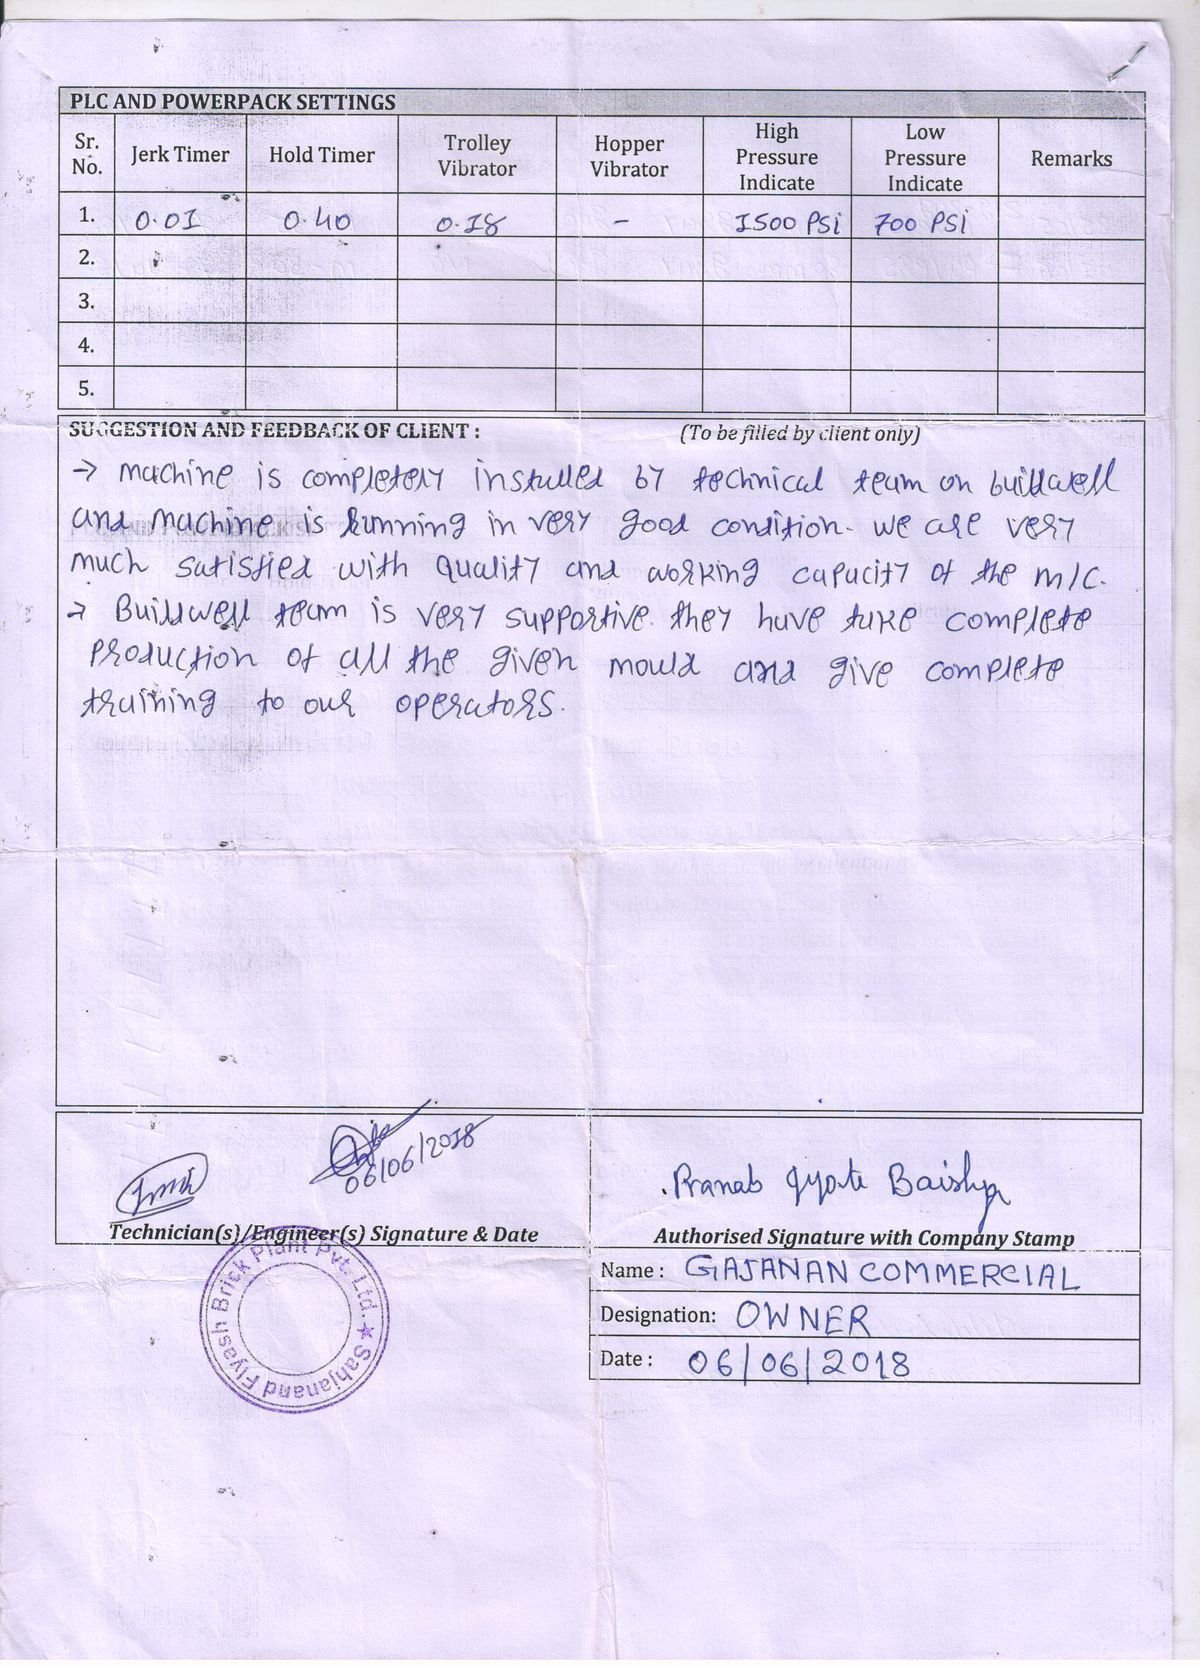 PLC AND POWERPACK SETTINGS
Sr. No. Jerk Timer Hold Timer Trolley Vibrator Hopper Vibrator High Pressure Indicate Low Pressure Indicate Remarks
1. 0.01 0.40 0.18 - 1500 PSi 700 PSi
2.
3.
4.
5.
SUGGESTION AND FEEDBACK OF CLIENT : (To be filled by client only)
→ Machine is completely installed by technical team on buildwell
and machine is running in very good condition. we are very
much satisfied with quality and working capacity of the m/c.
→ Buildwell team is very supportive. they have take complete
production of all the given mould and give complete
training to our operators.
06/06/2018
Pranab Jyote Baishya
Technician(s)/Engineer(s) Signature & Date
Authorised Signature with Company Stamp
Name : GAJANAN COMMERCIAL
Designation: OWNER
Date : 06/06/2018
Sahjanand Flyash Brick Plant Pvt. Ltd. ★